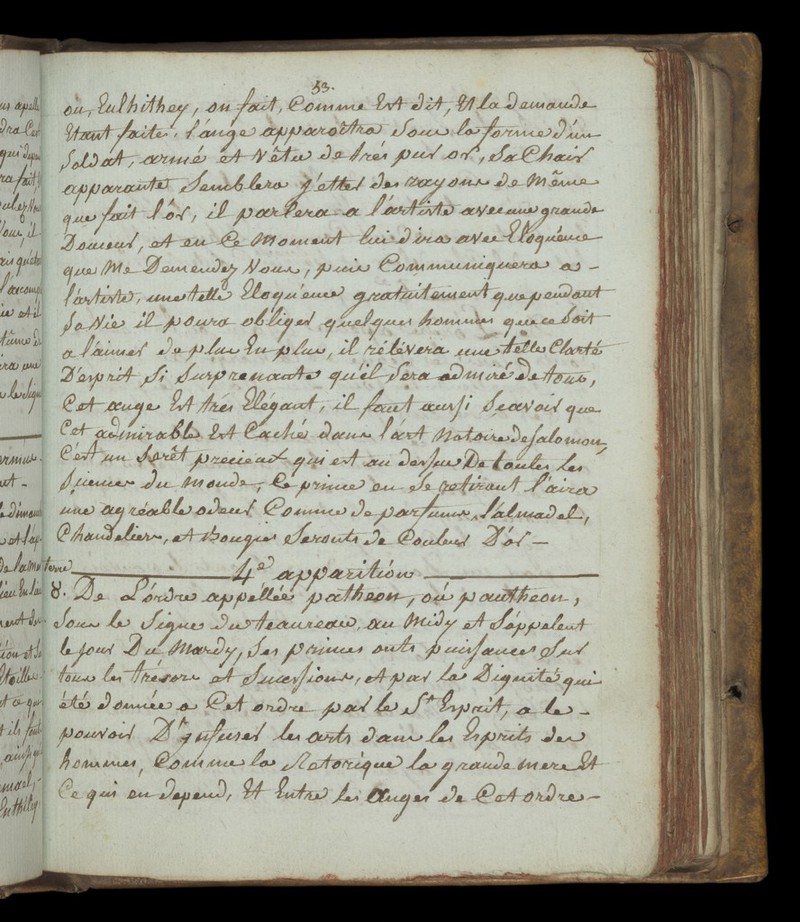 53.
ou, Eulhithey, on fait, Comme Est dit, Et la demande
Etant faite, l'ange apparoîtra Sous la forme d'un
Soldat, armé et Vêtu de trés pur or, Sa Chair
apparante Semblera j'etter des rayons de Même
que fait l'or, il parlera a l'artiste avec une grande
Douceur, et en Ce Moment lui dira avec Eloquence
que Me Demendez Vous, puis Communiquera a -
l'artiste, une telle Eloquence gratuitement que pendant
Sa Vie il poura obliger quelques hommes que ce Soit
a l'aimer de plus En plus, il rélévera une telle Clarté
D'esprit Si Surprenante qu'il Sera admiré de tous,
Cet ange Est trés Elégant, il faut aussi Scavoir que
Cet admirable Est Caché dans l'art Notoire de Salomon,
C'est un Serêt precieux qui est au dessus De toutes les
Siences du monde, Ce prince en Se retirant l'aira
une agréable odeur Comme de parfums, l'almadel,
Chandeliers, et Bougies Seronts de Couleur D'or -
4e apparition
♉. De L'órdre appellée patheon, ou pantheon,
Sous le Signe du teaureau, au Midy et S'appelent
le jour Du Mardy, Ses princes onts puissances Sur
tous les trésors et Sucessions, et par la Dignité qui
été donnée a Cet ordre par le St Esprit, a le -
pouvoir D'infuser les arts dans les Esprits des
hommes, Comme la Retorique la grande mere Et
Ce qui en depend, Et Entre les Anges de Cet ordre -